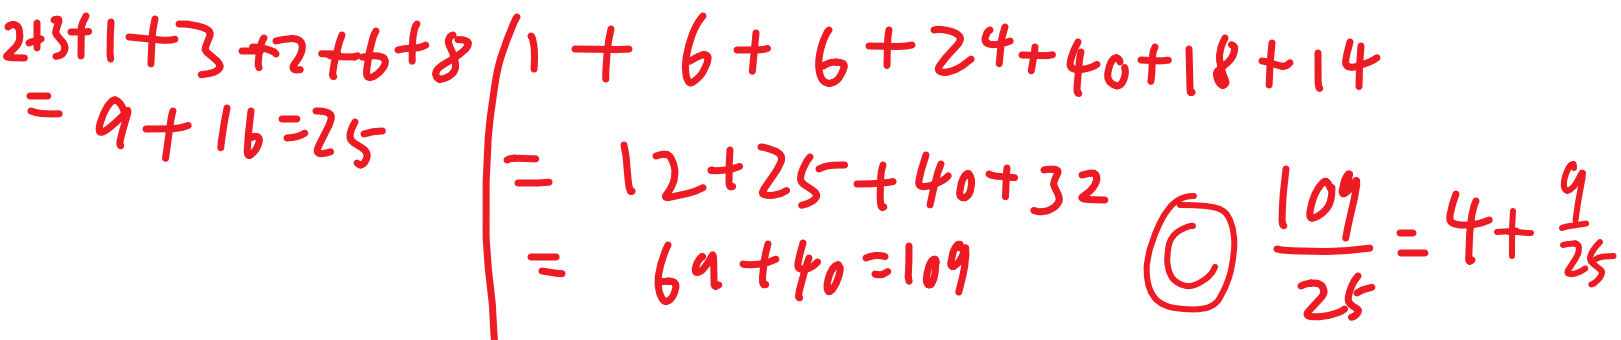 2+3+1+3+2+6+8
= 9+16=25
1+6+6+24+40+18+14
= 12+25+40+32
= 69+40=109
Ⓒ 109/25 = 4+9/25